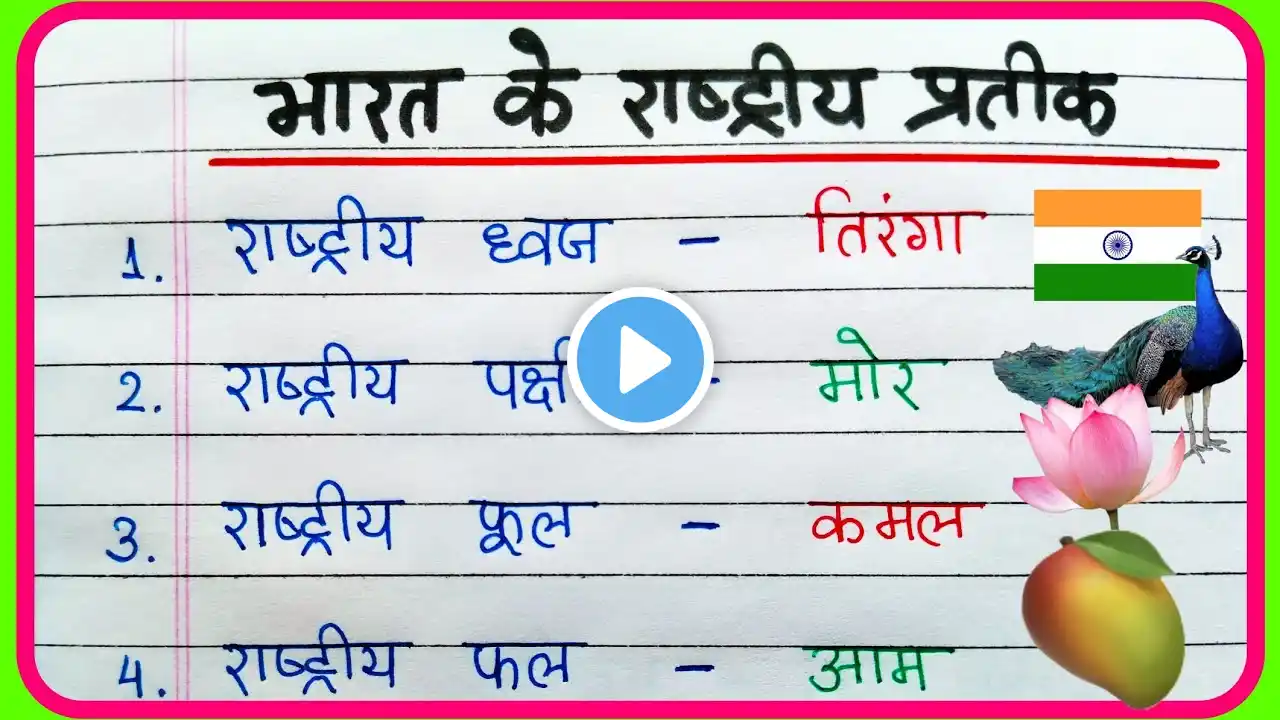 भारत के राष्ट्रीय प्रतीक
1. राष्ट्रीय ध्वज - तिरंगा
2. राष्ट्रीय - मोर
3. राष्ट्रीय फूल - कमल
4. राष्ट्रीय फल - आम